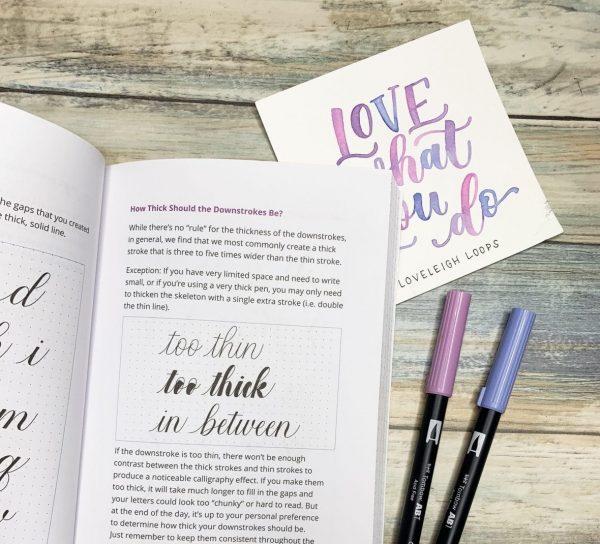 he gaps that you created
e thick, solid line.
d
h i
m
How Thick Should the Downstrokes Be?
While there's no "rule" for the thickness of the downstrokes,
in general, we find that we most commonly create a thick
stroke that is three to five times wider than the thin stroke.
Exception: If you have very limited space and need to write
small, or if you're using a very thick pen, you may only need
to thicken the skeleton with a single extra stroke (i.e. double
the thin line).
too thin
too thick
in between
If the downstroke is too thin, there won't be enough
contrast between the thick strokes and thin strokes to
produce a noticeable calligraphy effect. If you make them
too thick, it will take much longer to fill in the gaps and
your letters could look too "chunky" or hard to read. But
at the end of the day, it's up to your personal preference
to determine how thick your downstrokes should be.
Just remember to keep them consistent throughout the
LOVE
what
you do
LOVELEIGH LOOPS
Tombow ABT
Tombow ABT